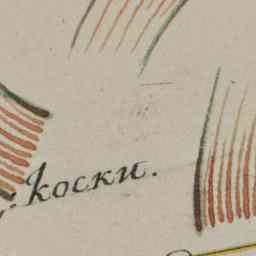 коски.